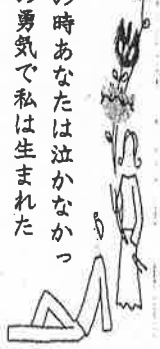 時あなたは泣かなかっ
勇気で私は生まれた